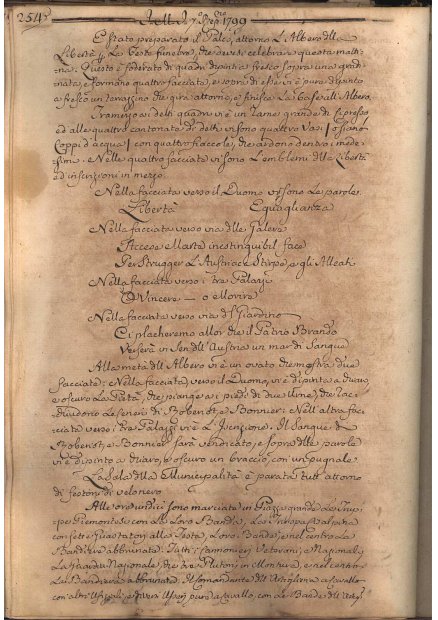 254
1799
È Stato preparato il Palco attorno L'Albero della
Libertà p. La Festa funebre, che devesi celebrare questa matti-
na. Questo è foderato di quadri dipinti a fresco sopra una gradi-
nata, e formano quattro facciate, e sopra di esse vi è pure dipinto
a fresco un terrazzino che gira attorno, e finisce La base all'Albero.
Tramezzo ai detti quadri vi è un ramo grande di Cipresso
ed alle quattro cantonate di detti vi sono quattro Vasi / o siano
Coppi d'acqua / con quattro fiaccole, che ardono dentro i mede-
simi. e Nelle quattro facciate vi sono L'emblemi della Libertà
ed inscrizioni in mezzo.
Nella facciata verso il Duomo vi sono Le parole.
Libertà Eguaglianza
Nella facciata verso via delle Galere
Accese Marte inestinguibil face
Per Strugger L'Austriaca Stirpe, e gli Alleati
Nella facciata verso i tre Palazzi
O Vincere — o Morire
Nella facciata verso via del Giardino
Ci placheremo allor che il Patrio Brando
Verserà in sen dell'Austria un mar di Sangue
Alla metà dell'Albero vi è un ovato che mostra due
facciate: Nella facciata verso il Duomo, vi è dipinta a chiaro,
e oscuro La Pietà, che piange ai piedi di due Urne, che rac-
chiudono Le ceneri di Roberiot, e Bonnier: Nell'altra fac-
ciata verso i tre Palazzi vi è L'Iscrizione. Il Sangue di
Roberiot, e Bonnier sarà vendicato, e sopra delle parole
vi è dipinto a chiaro, e oscuro un braccio con un pugnale
La Sala della Municipalità è parata tutt'attorno
di festoni di velo nero
Alle ore undici sono marciata in Piazza grande Le Trup-
pe Piemontese con Le Loro Bandie, La Truppa Cisalpina
con sette Guastatori alla Testa, Loro Bande, e nel centro La
Bandiera abbrunata. Tutti i Cannonieri Veterani, e Nazionali,
La Guardia Nazionale, che tre Plutoni in Montura, e nel centro
La Bandiera abbrunata. Il Comandante dell'Artiglieria a Cavallo
con altri Uffiziali, e diversi Usseri pure a Cavallo, con Le Bande dell'